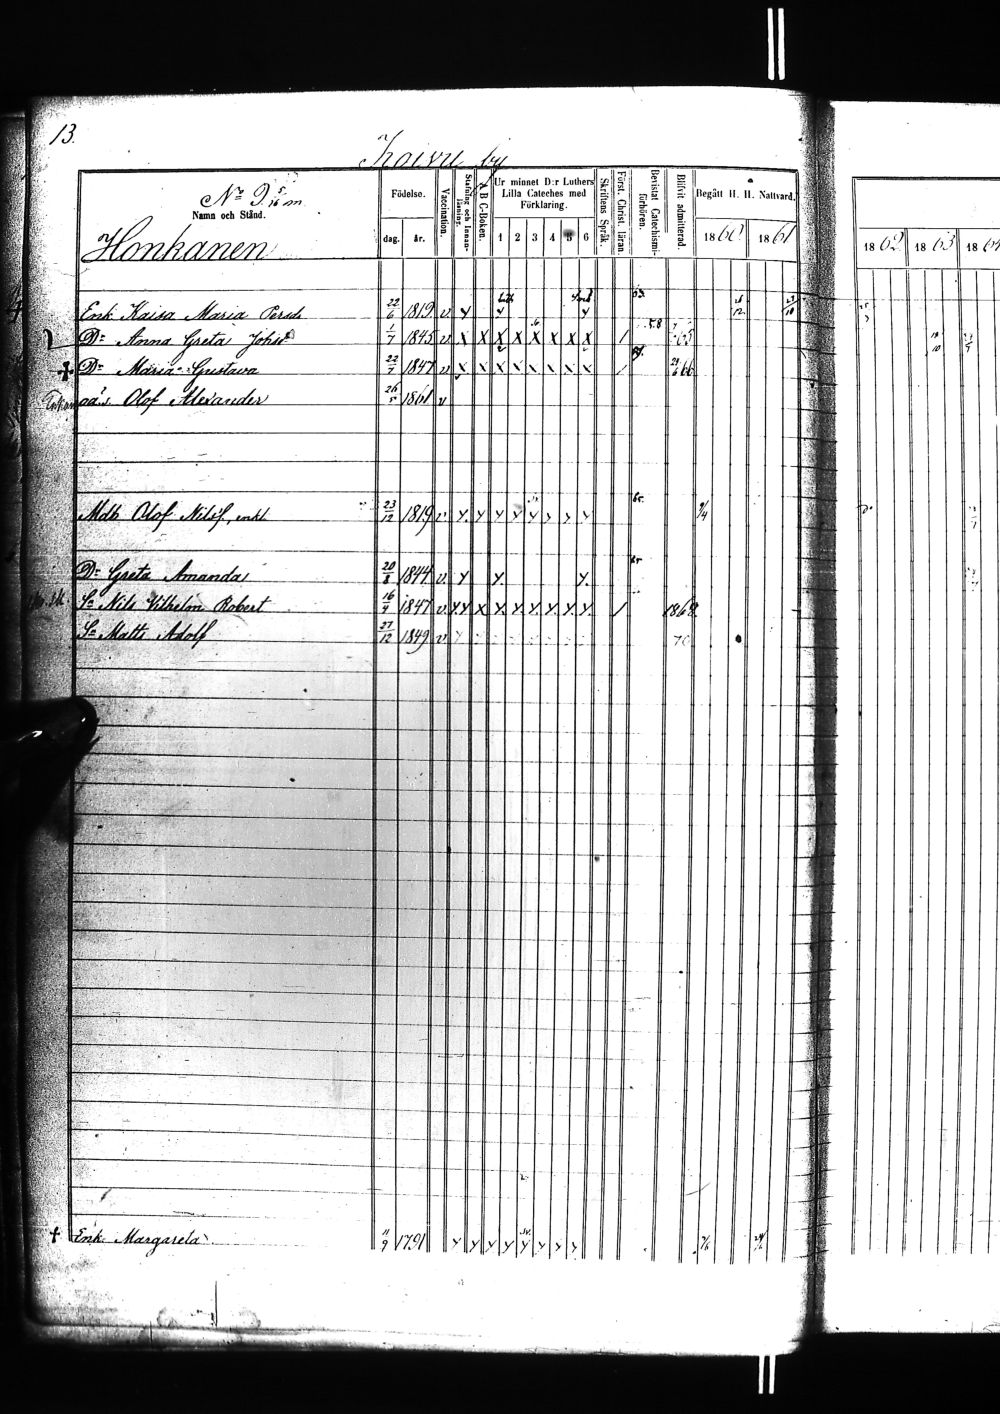 13.
Koivu by
No 9. 5/16 m.
Namn och Stånd.
Honkanen
Födelse.
dag. år.
Vaccination.
Stafning och Innanläsning.
A B C-Boken.
Ur minnet D:r Luthers Lilla Cateches med Förklaring.
1 2 3 4 5 6
Skriftens Språk.
Först. Christ. läran.
Bevistat Catechismi-förhören.
Blifvit admitterad.
Begått H. H. Nattvard.
1860 1861
1862 1863 186
Enk. Kaisa Maria Persdr 22/6 1819 v y y y 63.
Dr Anna Greta Johsdr 1/7 1845 v x x x x x x x x / 58 65
Dr Maria Gustava 22/7 1847 v x x x x x x x x / 66
oä. s. Olof Alexander 26/5 1861 v
Mdb Olof Nilsf, enkl 23/12 1819 v y y y y y y y y 65. 9/4
Dr Greta Amanda 20/8 1844 v. y y. y. 65.
Sn Nils Vilhelm Robert 16/4 1847 v. y. y x y. y. y. y. y. y. / 1868
Sn Matts Adolf 27/12 1849 v 70
† Enk. Margareta 11/9 1791 y y y y y y y y 7/6 24/6